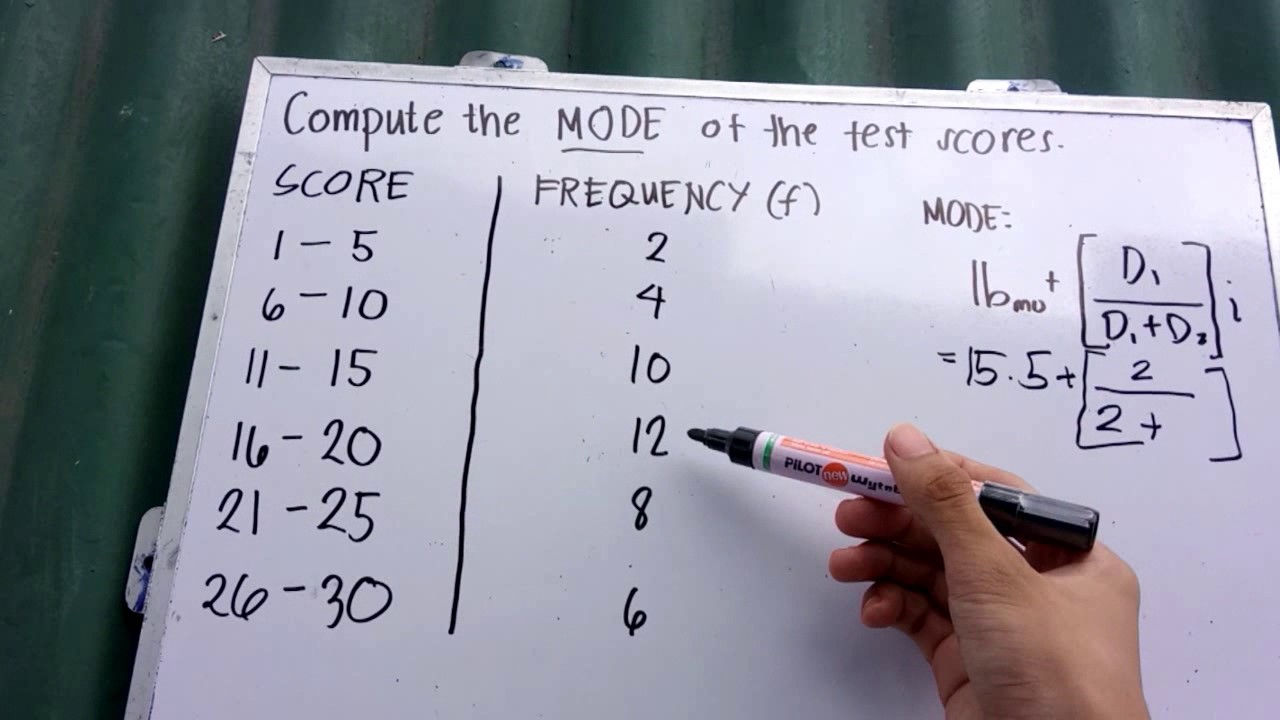 Compute the MODE of the test scores.
SCORE FREQUENCY (f)
1 – 5 2
6 – 10 4
11 – 15 10
16 – 20 12
21 – 25 8
26 – 30 6
MODE:
lbmo + [D1 / D1 + D2] i
= 15.5 + [2 / 2 + ]
PILOT new Wyteb